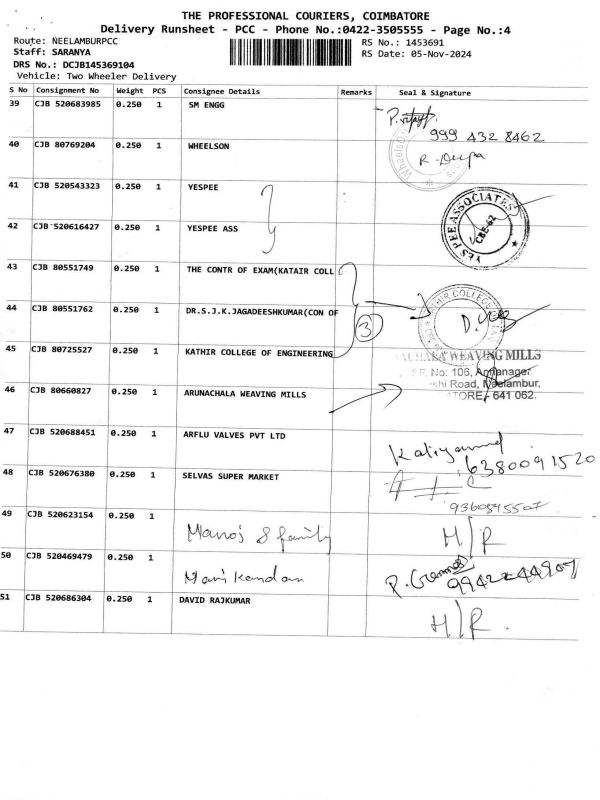 THE PROFESSIONAL COURIERS, COIMBATORE
Delivery Runsheet - PCC - Phone No.:0422-3505555 - Page No.:4
Route: NEELAMBURPCC
RS No.: 1453691
Staff: SARANYA
RS Date: 05-Nov-2024
DRS No.: DCJB145369104
Vehicle: Two Wheeler Delivery
S No Consignment No Weight PCS Consignee Details Remarks Seal & Signature
39 CJB 520683985 0.250 1 SM ENGG
999 432 8462
40 CJB 80769204 0.250 1 WHEELSON
R. Deepa
41 CJB 520543323 0.250 1 YESPEE
YES PEE ASSOCIATES
CBE-62
42 CJB 520616427 0.250 1 YESPEE ASS
43 CJB 80551749 0.250 1 THE CONTR OF EXAM(KATAIR COLL
44 CJB 80551762 0.250 1 DR.S.J.K.JAGADEESHKUMAR(CON OF
3
45 CJB 80725527 0.250 1 KATHIR COLLEGE OF ENGINEERING
WEAVING MILLS
No: 106,
Road, Neelambur,
641 062.
46 CJB 80660827 0.250 1 ARUNACHALA WEAVING MILLS
47 CJB 520688451 0.250 1 ARFLU VALVES PVT LTD
6380091520
48 CJB 520676380 0.250 1 SELVAS SUPER MARKET
49 CJB 520623154 0.250 1 Manoj & family H/R
50 CJB 520469479 0.250 1 Manikandan
51 CJB 520686304 0.250 1 DAVID RAJKUMAR H/R.